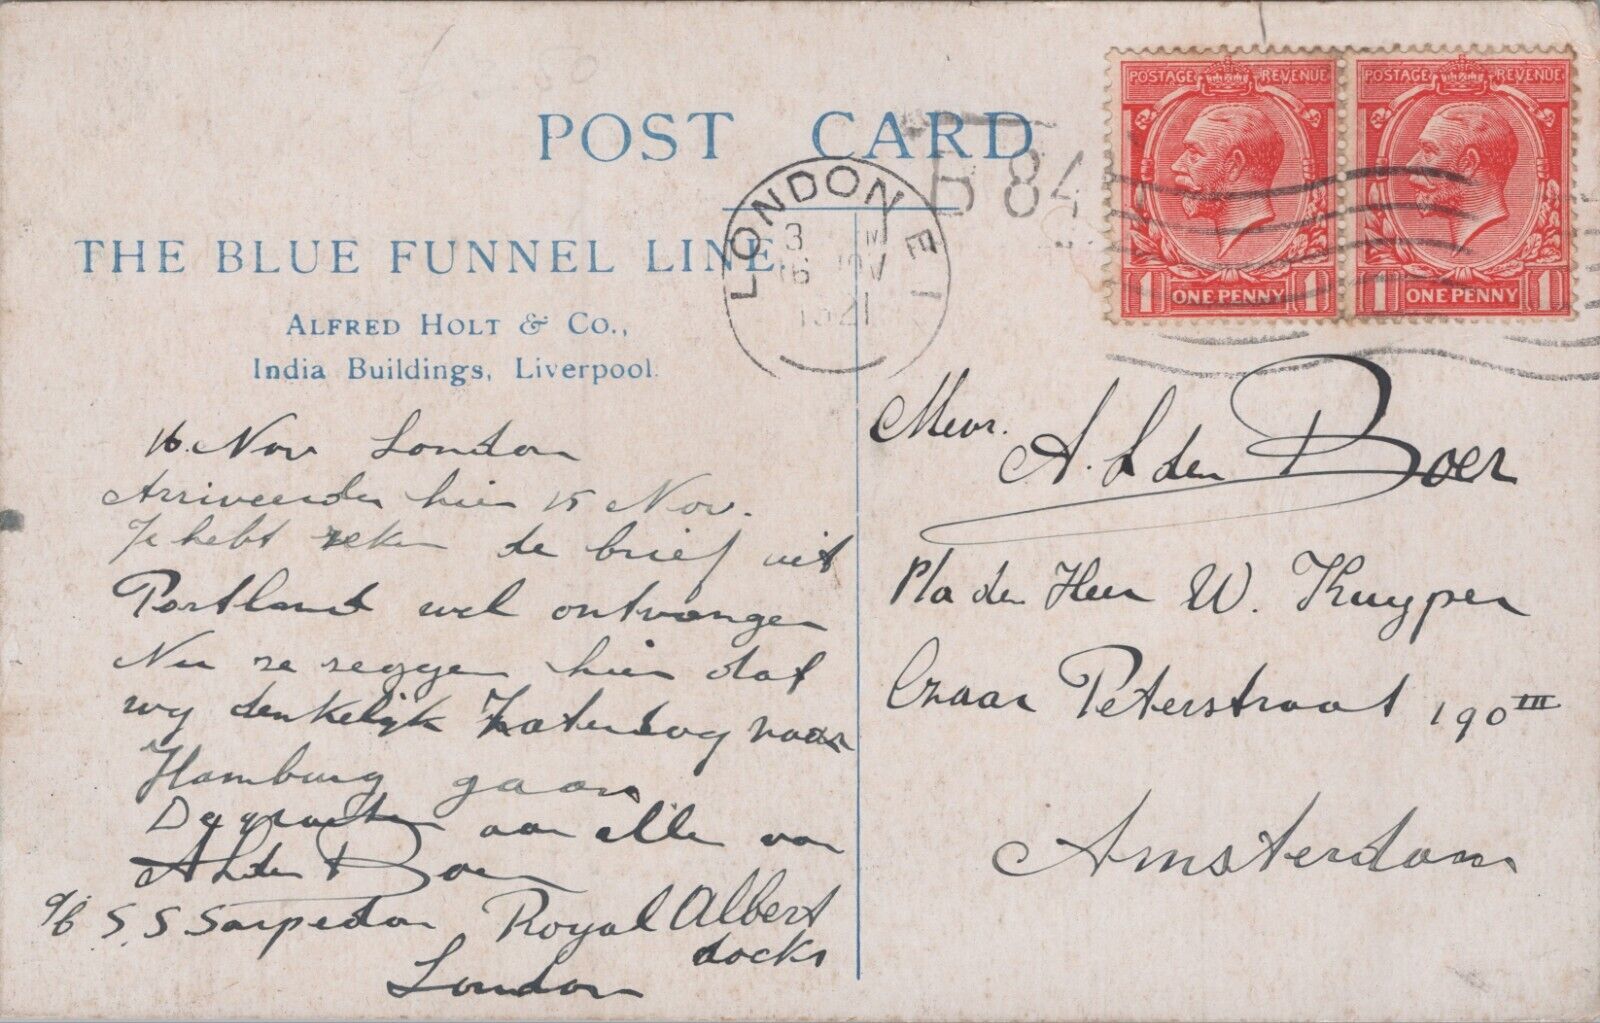 POST CARD
THE BLUE FUNNEL LINE
ALFRED HOLT & CO.,
India Buildings, Liverpool.
LONDON E 1
3 M
16 NOV
1921
B 84
POSTAGE REVENUE
1 ONE PENNY 1
POSTAGE REVENUE
1 ONE PENNY 1
16 Nov London
Arriveerden hier 15 Nov.
Je hebt zeker de brief uit
Portland wel ontvangen
Nu ze zeggen hier dat
wy denkelijk Zaterdag naar
Hamburg gaan
De groeten aan alle van
A L den Boer
a/b S.S Sarpedon Royal Albert
docks
London
Mevr. A. L den Boer
p/a den Heer W. Kuyper
Czaar Peterstraat 190 III
Amsterdam